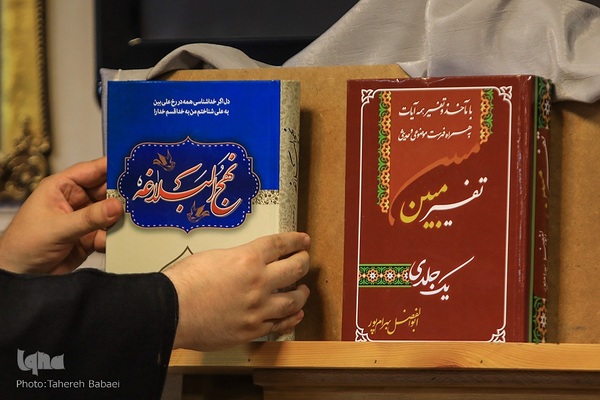 دل اگر خداشناسی همه در رخ علی بین
به علی شناختم من به خدا قسم خدا را
نهج البلاغه
با مآخذ و تفسیر همه آیات
همراه فهرست موضوعی
مبین
تفسیر مبین
یک جلدی
ابوالفضل بهرام‌پور
iqna
Photo: Tahereh Babaei